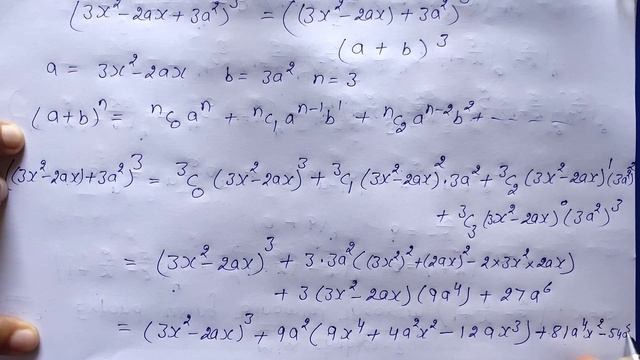 (3x²-2ax+3a²)³ = ((3x²-2ax)+3a²)³
(a+b)³
a = 3x²-2ax b = 3a² n = 3
(a+b)ⁿ = ⁿC₀ aⁿ + ⁿC₁ aⁿ⁻¹b¹ + ⁿC₂ aⁿ⁻²b² + - - - -
((3x²-2ax)+3a²)³ = ³C₀ (3x²-2ax)³ + ³C₁ (3x²-2ax)²·3a² + ³C₂ (3x²-2ax)¹(3a²)²
+ ³C₃ (3x²-2ax)⁰ (3a²)³
= (3x²-2ax)³ + 3·3a²((3x²)²+(2ax)²-2×3x²×2ax)
+ 3(3x²-2ax)(9a⁴) + 27a⁶
= (3x²-2ax)³ + 9a²(9x⁴+4a²x²-12ax³)+81a⁴x²-54a⁵